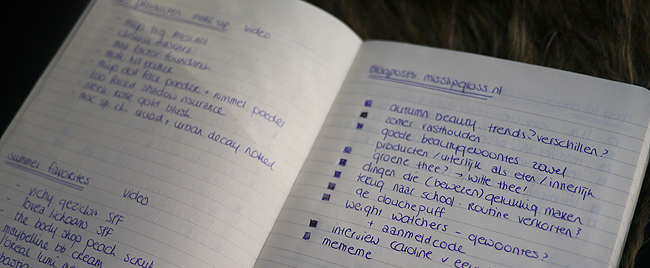 producten make up video
- mua big mascara
- clinique mascara
- max factor foundation
- nude lid primer
- mua dot face powder + rimmel poeder
- too faced shadow insurance
- sleek rose gold blush
- mac sp. ch. quad + urban decay naked
summer favorites video
- vichy gezichts SPF
- lovea lichaams SPF
- the body shop peach scrub
maybelline bb cream
l'oreal lumi
blogposts misslipgloss.nl
autumn beauty trends? verschillen?
zomer vasthouden
goede beautygewoontes zowel
producten/uiterlijk als eten/innerlijk
groene thee? → witte thee!
dingen die (bewezen) gelukkig maken
terug naar school - routine verkorten?
de douchepuff
weight watchers - gewoontes?
+ aanmeldcode
interview caroline v
mememe